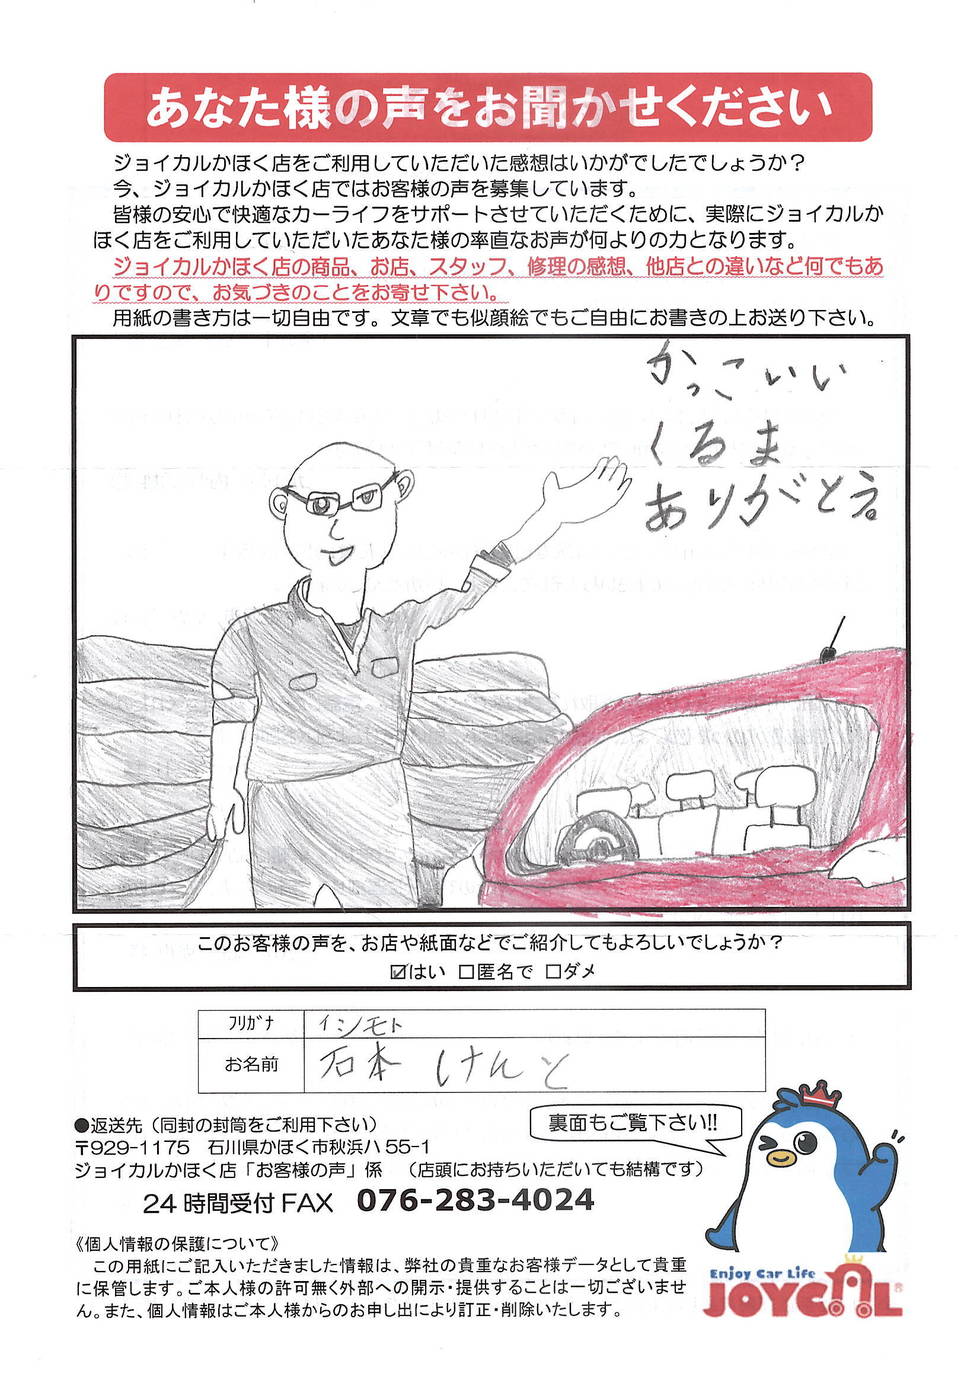 あなた様の声をお聞かせください
ジョイカルかほく店をご利用していただいた感想はいかがでしたでしょうか？
今、ジョイカルかほく店ではお客様の声を募集しています。
皆様の安心で快適なカーライフをサポートさせていただくために、実際にジョイカルか
ほく店をご利用していただいたあなた様の率直なお声が何よりの力となります。
ジョイカルかほく店の商品、お店、スタッフ、修理の感想、他店との違いなど何でもあ
りですので、お気づきのことをお寄せ下さい。
用紙の書き方は一切自由です。文章でも似顔絵でもご自由にお書きの上お送り下さい。
かっこいい
くるま
ありがとう。
このお客様の声を、お店や紙面などでご紹介してもよろしいでしょうか？
☑はい □匿名で □ダメ
ﾌﾘｶﾞﾅ イシモト
お名前 石本 けんと
●返送先（同封の封筒をご利用下さい）
〒929-1175 石川県かほく市秋浜ハ55-1
ジョイカルかほく店「お客様の声」係 （店頭にお持ちいただいても結構です）
24時間受付FAX 076-283-4024
裏面もご覧下さい!!
《個人情報の保護について》
この用紙にご記入いただきました情報は、弊社の貴重なお客様データとして貴重
に保管します。ご本人様の許可無く外部への開示・提供することは一切ございませ
ん。また、個人情報はご本人様からのお申し出により訂正・削除いたします。
Enjoy Car Life
JOYCAL®